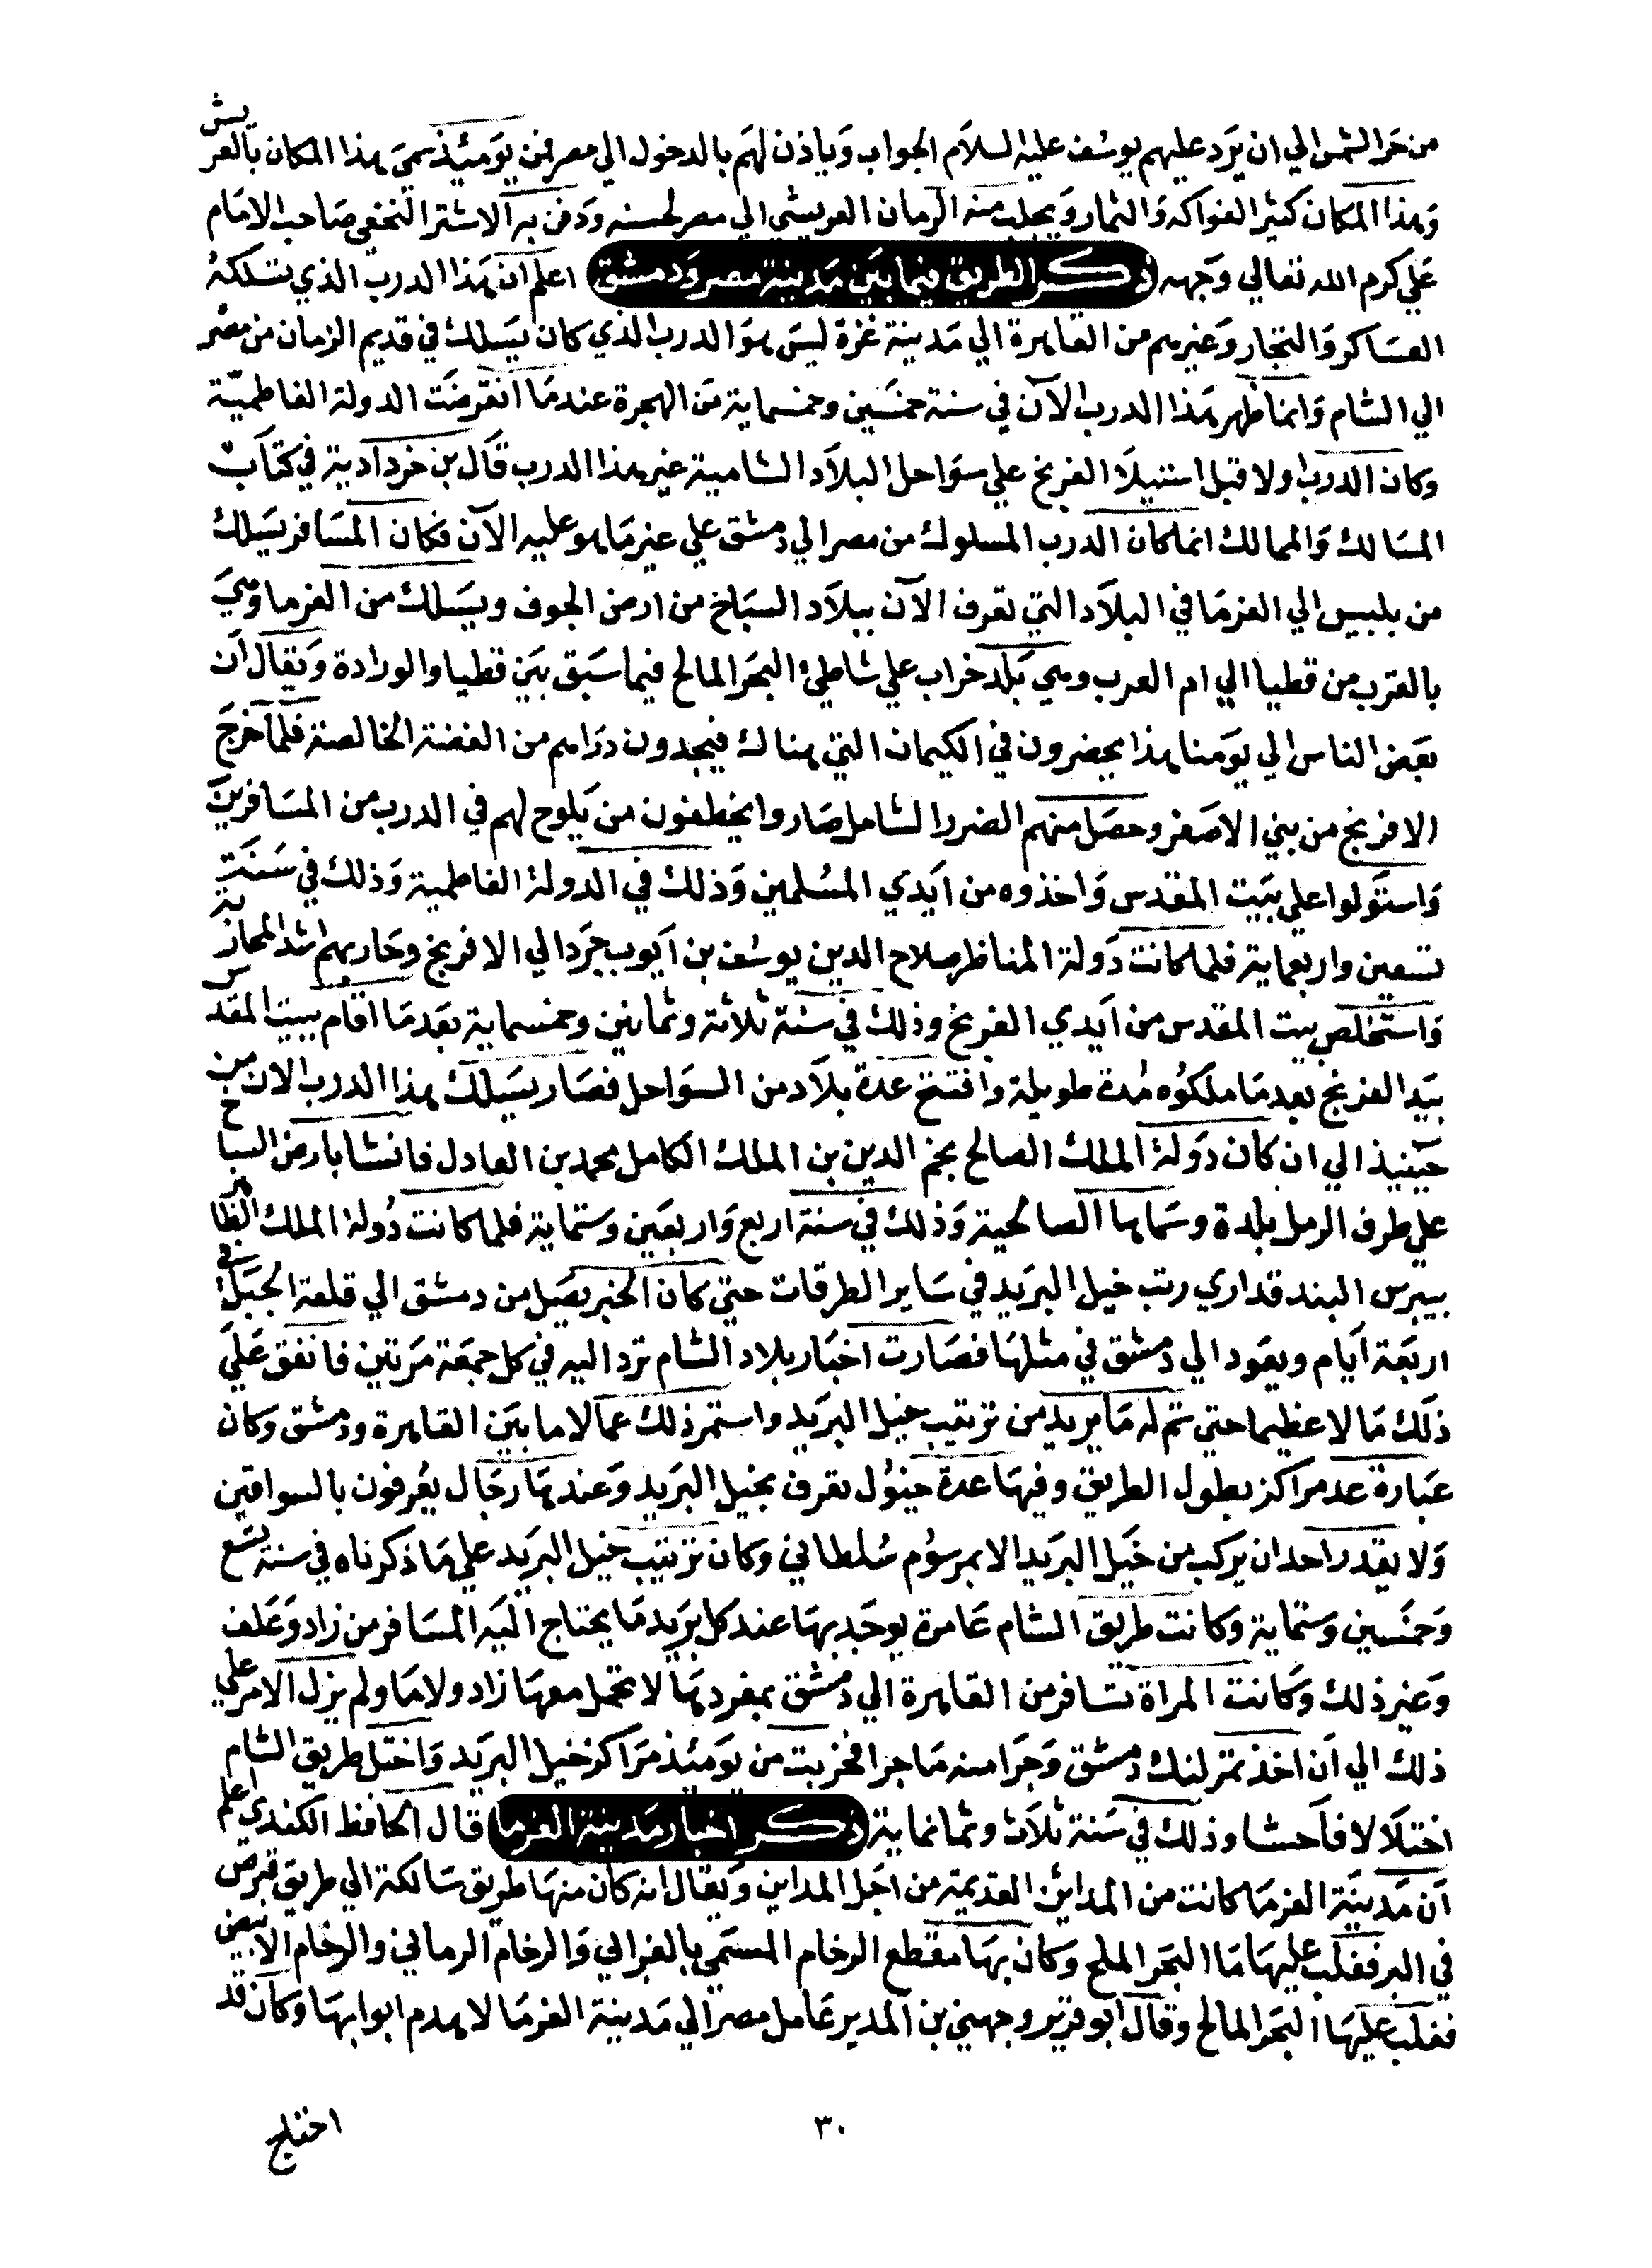 من حر الشمس الي ان يرد عليهم يوسف عليه السلام الجواب وياذن لهم بالدخول الي مصر فمن يومئذ سمي هذا المكان بالعريش
وهذا المكان كثير الفواكه والثمار ويجلب منه الرمان العريشي الي مصر لحسنه ودفن به الاشتر النخعي صاحب الامام
علي كرم الله تعالي وجهه ذكر الطريق فيما بين مدينة مصر ودمشق اعلم ان هذا الدرب الذي تسلكه
العساكر والتجار وغيرهم من القاهرة الي مدينة غزة ليس هو الدرب الذي كان يسلك في قديم الزمان من مصر
الي الشام وانما ظهر هذا الدرب الآن في سنة خمسين وخمسماية من الهجرة عندما انقرضت الدولة الفاطمية
وكان الدرب اولا قبل استيلا الفرنج علي سواحل البلاد الشامية غير هذا الدرب قال بن خردادبة في كتاب
المسالك والممالك انما كان الدرب المسلوك من مصر الي دمشق علي غير ما هو عليه الآن فكان المسافر يسلك
من بلبيس الي الفرما في البلاد التي تعرف الآن ببلاد السباخ من ارض الجوف ويسلك من الفرما وهي
بالقرب من قطيا الي ام العرب وهي بلد خراب علي شاطئ البحر المالح فيما سبق بين قطيا والورادة ويقال ان
بعض الناس الي يومنا هذا يحضرون في الكيمان التي هناك فيجدون دراهم من الفضة الخالصة فلما خرج
الافرنج من بني الاصفر وحصل منهم الضرر الشامل صاروا يخطفون من يلوح لهم في الدرب من المسافرين
واستولوا علي بيت المقدس واخذوه من ايدي المسلمين وذلك في الدولة الفاطمية وذلك في سنة
تسعين واربعماية فلما كانت دولة المناظر صلاح الدين يوسف بن ايوب جرد الي الافرنج وحاربهم اشد المحاربة
واستخلص بيت المقدس من ايدي الفرنج وذلك في سنة ثلاثة وثمانين وخمسماية بعد ما اقام ببيت المقدس
بيد الفرنج بعد ما ملكوه مدة طويلة وافتتح عدة بلاد من السواحل فصار يسلك هذا الدرب الان من
حينيذ الي ان كان دولة الملك الصالح نجم الدين بن الملك الكامل محمد بن العادل فانشا بارض السباخ
علي طرف الرمل بلدة وسماها الصالحية وذلك في سنة اربع واربعين وستماية فلما كانت دولة الملك الظاهر
بيبرس البندقداري رتب خيل البريد في ساير الطرقات حتي كان الخبر يصل من دمشق الي قلعة الجبل في
اربعة ايام ويعود الي دمشق في مثلها فصارت اخبار بلاد الشام ترد اليه في كل جمعة مرتين فانفق علي
ذلك مالا عظيما حتي تم له ما يريد من ترتيب خيل البريد واستمر ذلك عمالا ما بين القاهرة ودمشق وكان
عبارة عد مراكز بطول الطريق وفيها عدة خيول تعرف بخيل البريد وعندها رجال يعرفون بالسواقين
ولا يقدر احد ان يركب من خيل البريد الا بمرسوم سلطاني وكان ترتيب خيل البريد علي ما ذكرناه في سنة تسع
وخمسين وستماية وكانت طريق الشام عامرة يوجد بها عند كل بريد ما يحتاج اليه المسافر من زاد وعلف
وغير ذلك وكانت المراة تسافر من القاهرة الي دمشق بمفردها لا تحمل معها زاد ولا ما ولم يزل الامر علي
ذلك الي ان اخذ تمرلنك دمشق وجرا منه ما جرا فخربت من يومئذ مراكز خيل البريد واختل طريق الشام
اختلالا فاحشا وذلك في سنة ثلاث وثمانماية ذكر اخبار مدينة الفرما قال الحافظ الكندي اعلم
ان مدينة الفرما كانت من المداين القديمة من اجل المداين ويقال انه كان منها طريق سالكة الي طريق قبرص
في البر فغلب عليها ما البحر الملح وكان بها مقطع الرخام المسمي بالغرابي والرخام الرماني والرخام الابيض
فغلب عليها البحر المالح وقال ابو قرير وجهني بن المدير عامل مصر الي مدينة الفرما لا يهدم ابوابها وكان قد
٣٠
احتاج